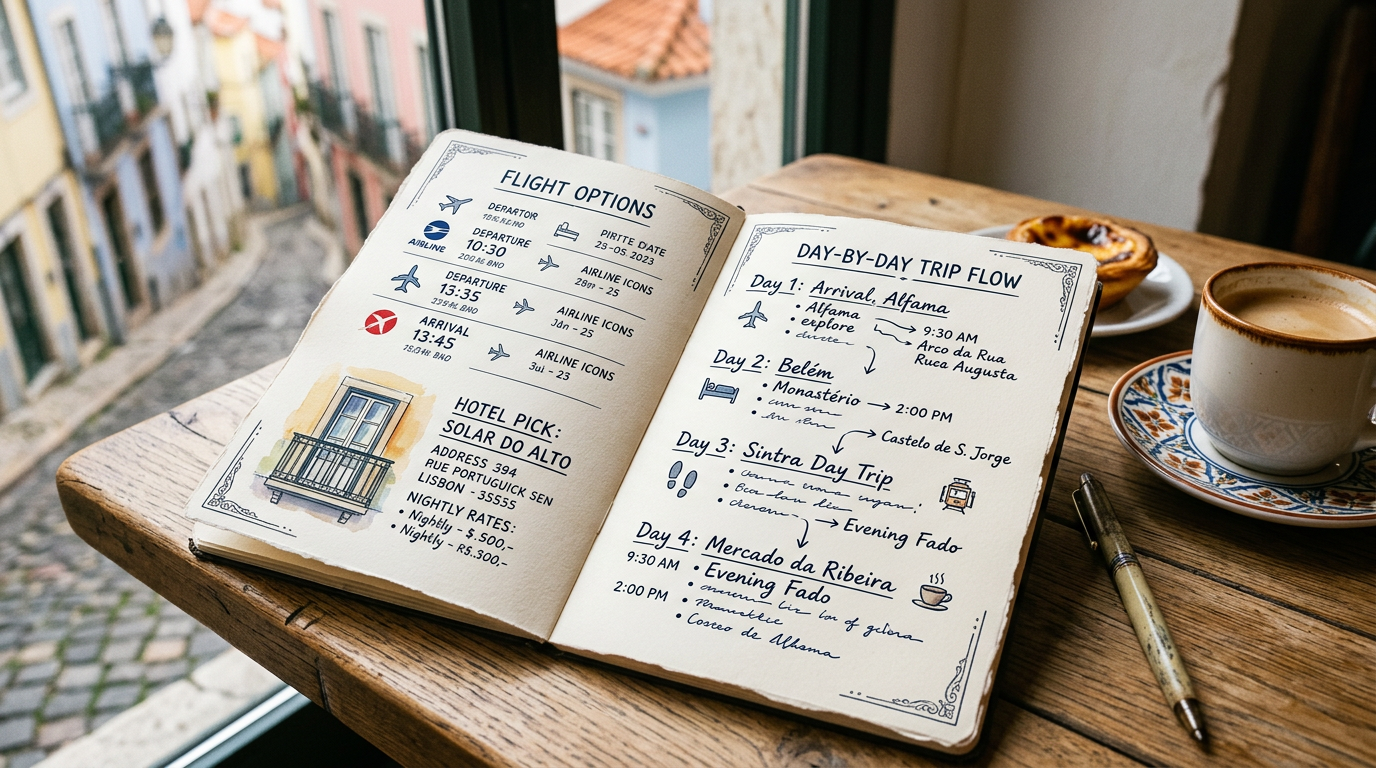 FLIGHT OPTIONS
DEPARTOR
PIRTE DATE
23-05.2023
AIRLINE
DEPARTURE
10:30
AIRLINE ICONS
DEPARTURE
13:35
AIRLINE ICONS
Jan - 25
ARRIVAL
13:45
AIRLINE ICONS
Jui - 23
HOTEL PICK:
SOLAR DO ALTO
ADDRESS 394
RUE PORTUGUICK SEN
LISBON - 35555
NIGHTLY RATES:
• Nightly - $.500,-
• Nightly - R5.300,-
DAY-BY-DAY TRIP FLOW
Day 1: Arrival, Alfama
• Alfama
• explore
9:30 AM
Arco da Rua
Ruca Augusta
Day 2: Belém
• Monastério → 2:00 PM
Castelo de S. Jorge
Day 3: Sintra Day Trip
Evening Fado
Day 4: Mercado da Ribeira
9:30 AM • Evening Fado
2:00 PM